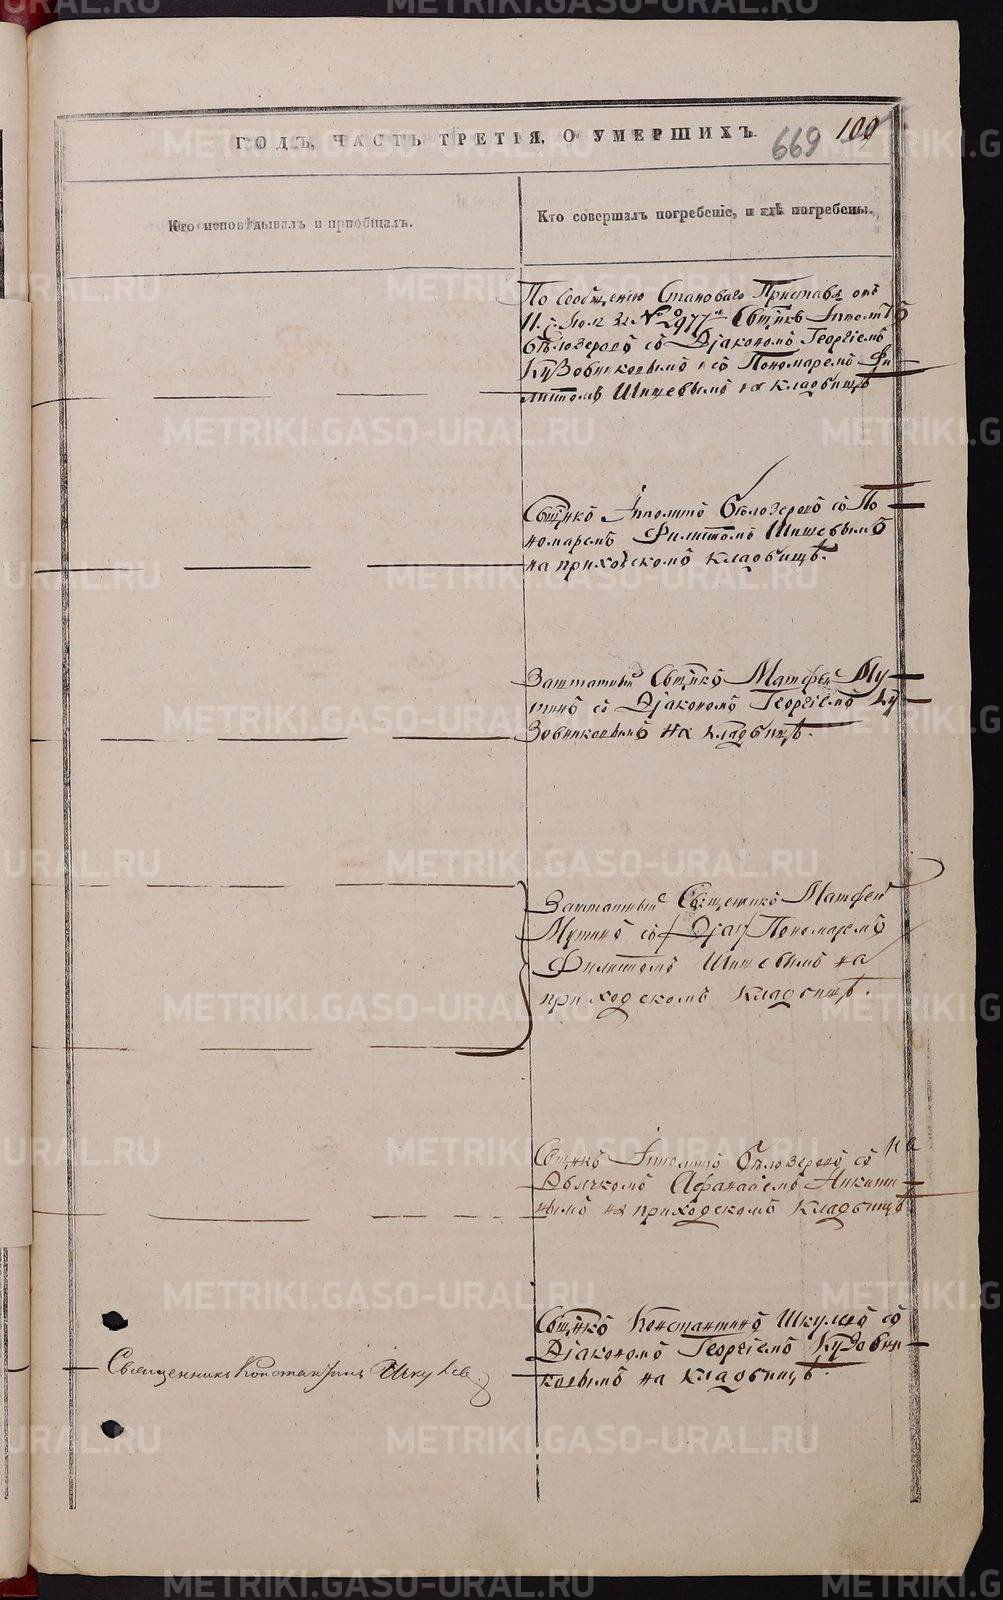 ГОДЪ, ЧАСТЬ ТРЕТІЯ, О УМЕРШИХЪ.
669 109
Кто исповѣдывалъ и пріобщалъ.
Кто совершалъ погребеніе, и гдѣ погребены.
По Сообщению Становаго Пристава отъ
11. за № 2977 Свщнкъ Іпполитъ
Бѣлозеровъ съ Діакономъ Георгіемъ
Кузовниковымъ и съ Пономаремъ Фи
липпомъ Шишевымъ на кладбищѣ
Свщнкъ Іпполитъ Бѣлозеровъ съ По
номаремъ Филиппомъ Шишевымъ
на приходскомъ кладбищѣ.
Заштатный Свщнкъ Матфей Му
тинъ съ Діакономъ Георгіемъ Ку
зовниковымъ на кладбищѣ.
Заштатный Священникъ Матфей
Мутинъ съ /Діа/ Пономаремъ
Филиппомъ Шишевымъ на
приходскомъ кладбищѣ.
Свщнкъ Іпполитъ Бѣлозеровъ съ
Дьячкомъ Афанасіемъ Никити
нымъ на приходскомъ кладбищѣ
Свщнкъ Константинъ Шкулевъ съ
Діакономъ Георгіемъ Кузовни
ковымъ на кладбищѣ.
Священникъ Константинъ Шкулев.
METRIKI.GASO-URAL.RU